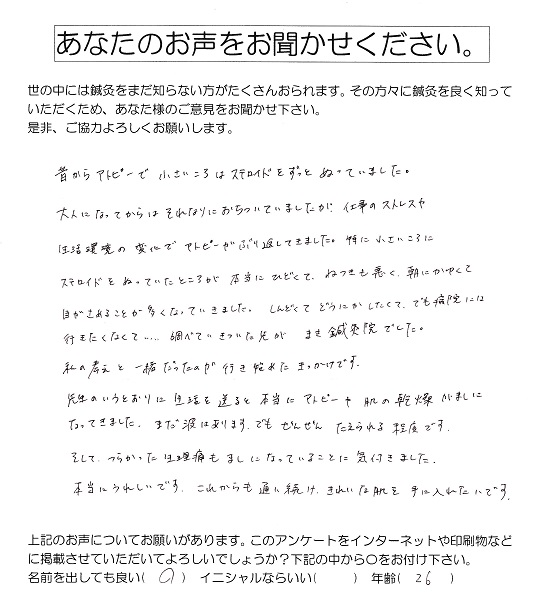 あなたのお声をお聞かせください。
世の中には鍼灸をまだ知らない方がたくさんおられます。その方々に鍼灸を良く知って
いただくため、あなた様のご意見をお聞かせ下さい。
是非、ご協力よろしくお願いします。
昔から アトピーで 小さいころは ステロイドを ずっと ぬっていました。
大人になってからは それなりに おちついていましたが、仕事の ストレスや
生活環境の 変化で アトピーが ぶり返してきました。特に 小さいころに
ステロイドを ぬっていたところが 本当に ひどくて、ねつきも 悪く、朝に かゆくて
目がさめることが 多くなっていきました。しんどくて どうにか したくて、でも 病院には
行きたくなくて…. 調べていきついた先が まき鍼灸院でした。
私の考えと 一緒だったのが 行き始めた きっかけです。
先生の いうとおりに 生活を 送ると 本当に アトピーや 肌の 乾燥が ましに
なってきました。まだ 波は あります。でも ぜんぜん たえられる 程度です。
そして、つらかった 生理痛も ましに なっていることに 気付きました。
本当に うれしいです。これからも 通い続け、きれいな 肌を 手に入れたいです。
上記のお声についてお願いがあります。このアンケートをインターネットや印刷物など
に掲載させていただいてよろしいでしょうか？下記の中から〇をお付け下さい。
名前を出しても良い( 〇 ) イニシャルならいい( ) 年齢( 26 )